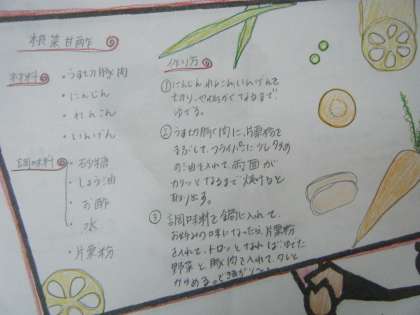 根菜甘酢
材料
・うす切り豚肉
・にんじん
・れんこん
・いんげん
調味料
・砂糖
・しょう油
・お酢
・水
・片栗粉
作り方
①にんじん、れんこん、いんげんを
ゆでる。
②うす切り豚肉に、片栗粉を
まぶして、フライパンに少し多めの
の油を入れて、両面が
カリッとなるまで焼けると
取り出す。
③調味料を鍋に入れて、
お好みの味になったら、片栗粉
を入れて、トロッとなれば ゆでた
野菜と、豚肉を入れて、タレと
からめる。